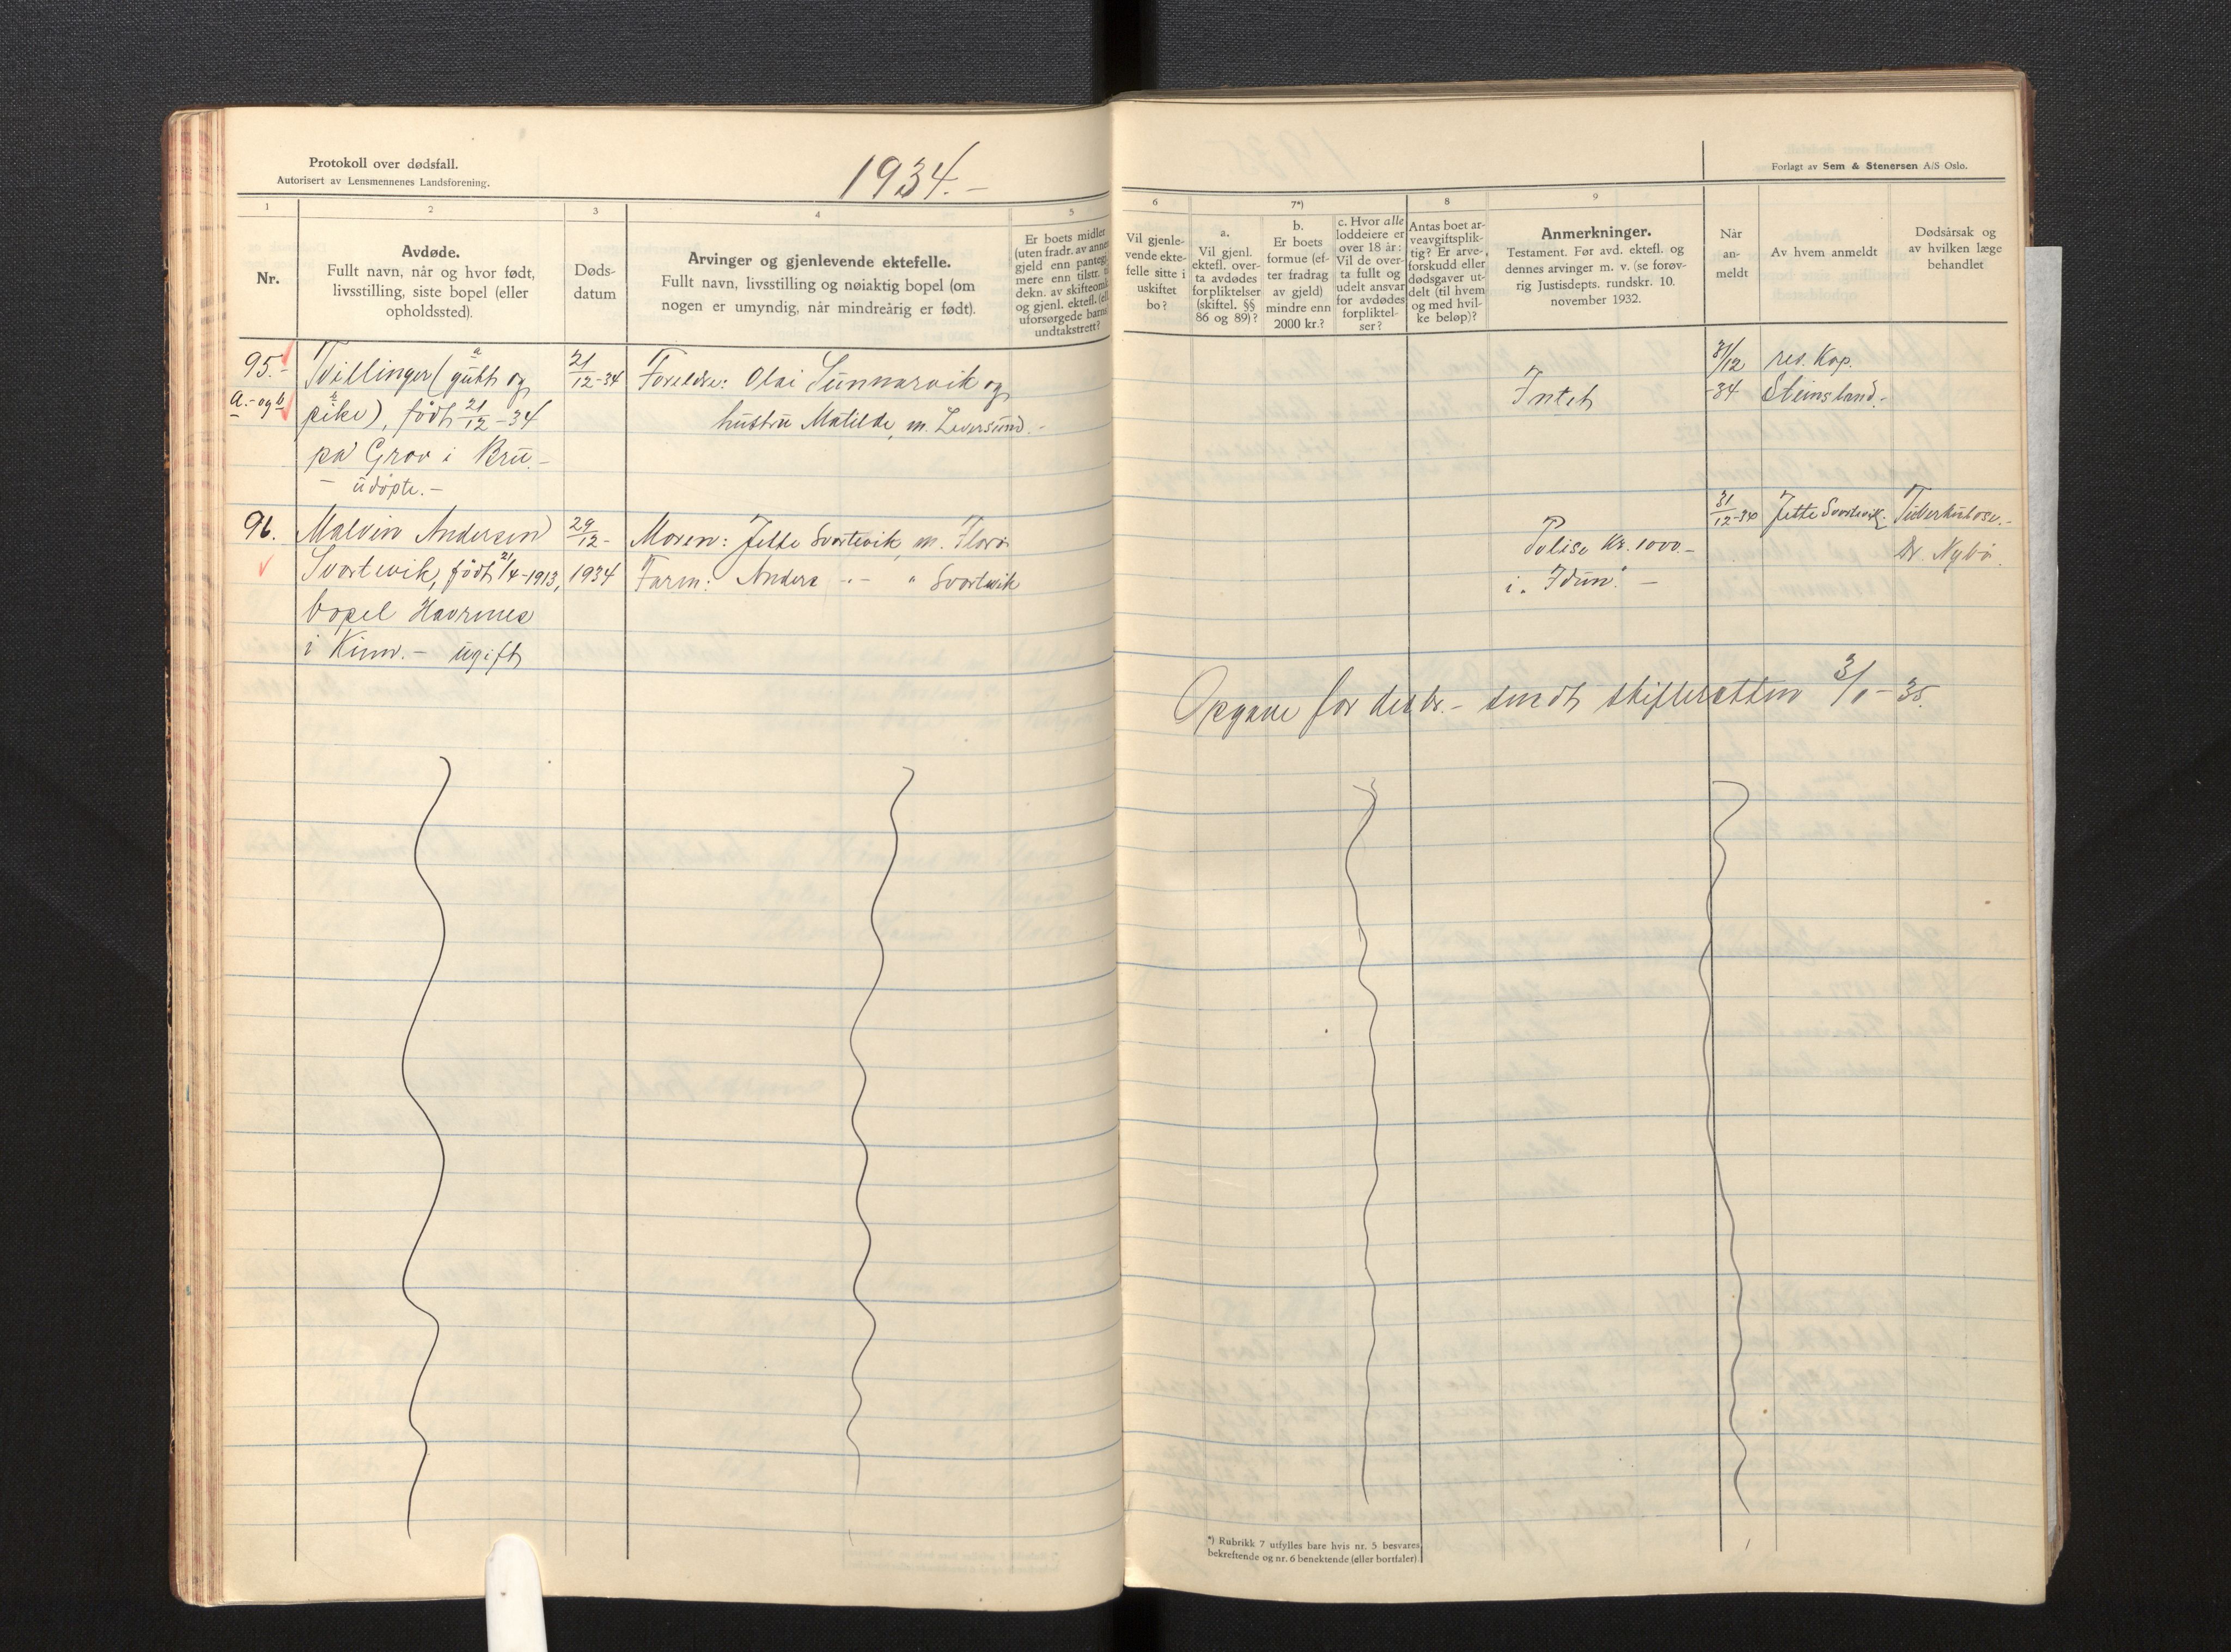 Protokoll over dødsfall.
Autorisert av Lensmennenes Landsforening.
1934.-
1
2
3
4
5
Nr.
Avdøde.
Fullt navn, når og hvor født,
livsstilling, siste bopel (eller
opholdssted).
Døds-
datum
Arvinger og gjenlevende ektefelle.
Fullt navn, livsstilling og nøiaktig bopel (om
nogen er umyndig, når mindreårig er født).
Er boets midler
(uten fradr. av annen
gjeld enn pantegj.
mere enn tilstr. ti
dekn. av skifteomk
og gjenl. ektefl. (ell
uforsørgede barns
undtakstrett?
95.-
a.- og b
Tvillinger (gutt og
a
pike), født 21/12-34
b
på Grov i Bru.-
- udøpte.-
21/12-34
Foreldre: Olai Sunnarvik og
hustru Matilde, m. Leversund.-
96.
Malvin Andersen
Svortevik, født 21/4-1913,
bopel Havrenes
i Kinn.- ugift
29/12-
1934
Moren: Jette Svortevik, m. Florø
Farm: Anders -"- " Svortevik
Forlagt av Sem & Stenersen A/S Oslo.
6
7*)
8
9
Vil gjenle-
vende ekte-
felle sitte i
uskiftet
bo?
a.
Vil gjenl.
ektefl. over-
ta avdødes
forpliktelser
(skiftel. §§
86 og 89)?
b.
Er boets
formue (ef-
ter fradrag
av gjeld)
mindre enn
2000 kr.?
c. Hvor alle
loddeiere er
over 18 år:
Vil de over-
ta fullt og
udelt ansvar
for avdødes
forpliktel-
ser?
Antas boet ar-
veavgiftsplik-
tig? Er arve-
forskudd eller
dødsgaver ut-
delt (til hvem
og med hvil-
ke beløp)?
Anmerkninger.
Testament. Før avd. ektefl. og
dennes arvinger m. v. (se forøv-
rig Justisdepts. rundskr. 10.
november 1932.
Når
an-
meldt
Av hvem anmeldt
Dødsårsak og
av hvilken læge
behandlet
Intet
31/12
-34
res. Kap.
Steinsland.-
Polise Kr. 1000.-
i "Idun".-
31/12-34
Jette Svortevik.
Tuberkulose.-
Dr. Nybø.
Opgave for desbr.- sendt skifteretten 3/1-35.
*) Rubrikk 7 utfylles bare hvis nr. 5 besvares
bekreftende og nr. 6 benektende (eller bortfaler).